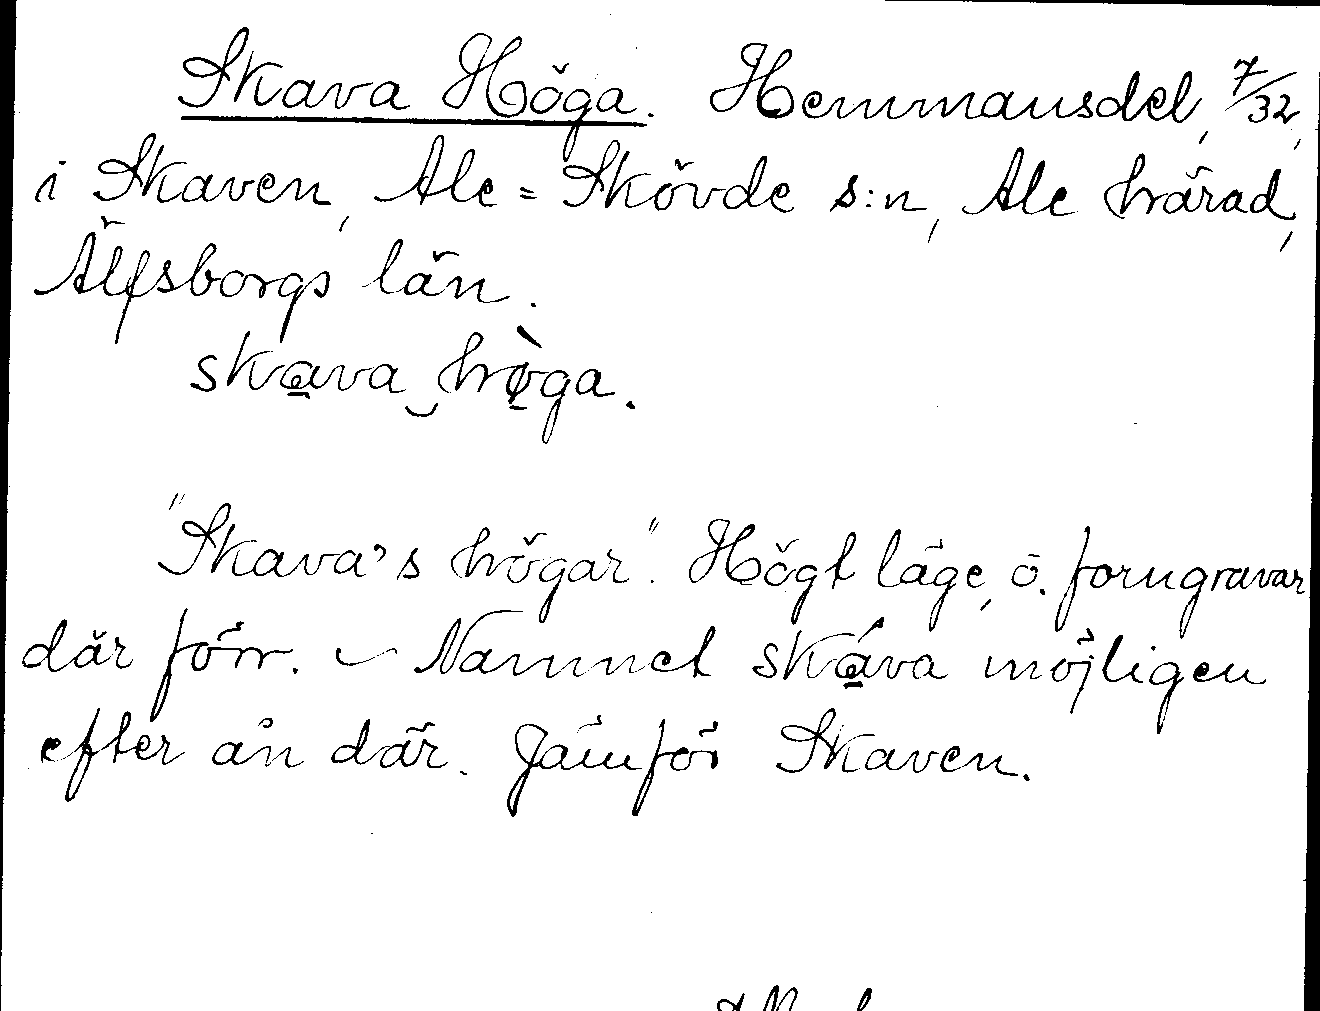 Skava Höga. Hemmansdel, 7/32,
i Skaven, Ale=Skövde s:n, Ale härad,
Älfsborgs län.
skava‿hø̀ga.
"Skava's högar". Högt läge, ö. forngravar
där förr. – Namnet skáva möjligen
efter ån där. Jämför Skaven.